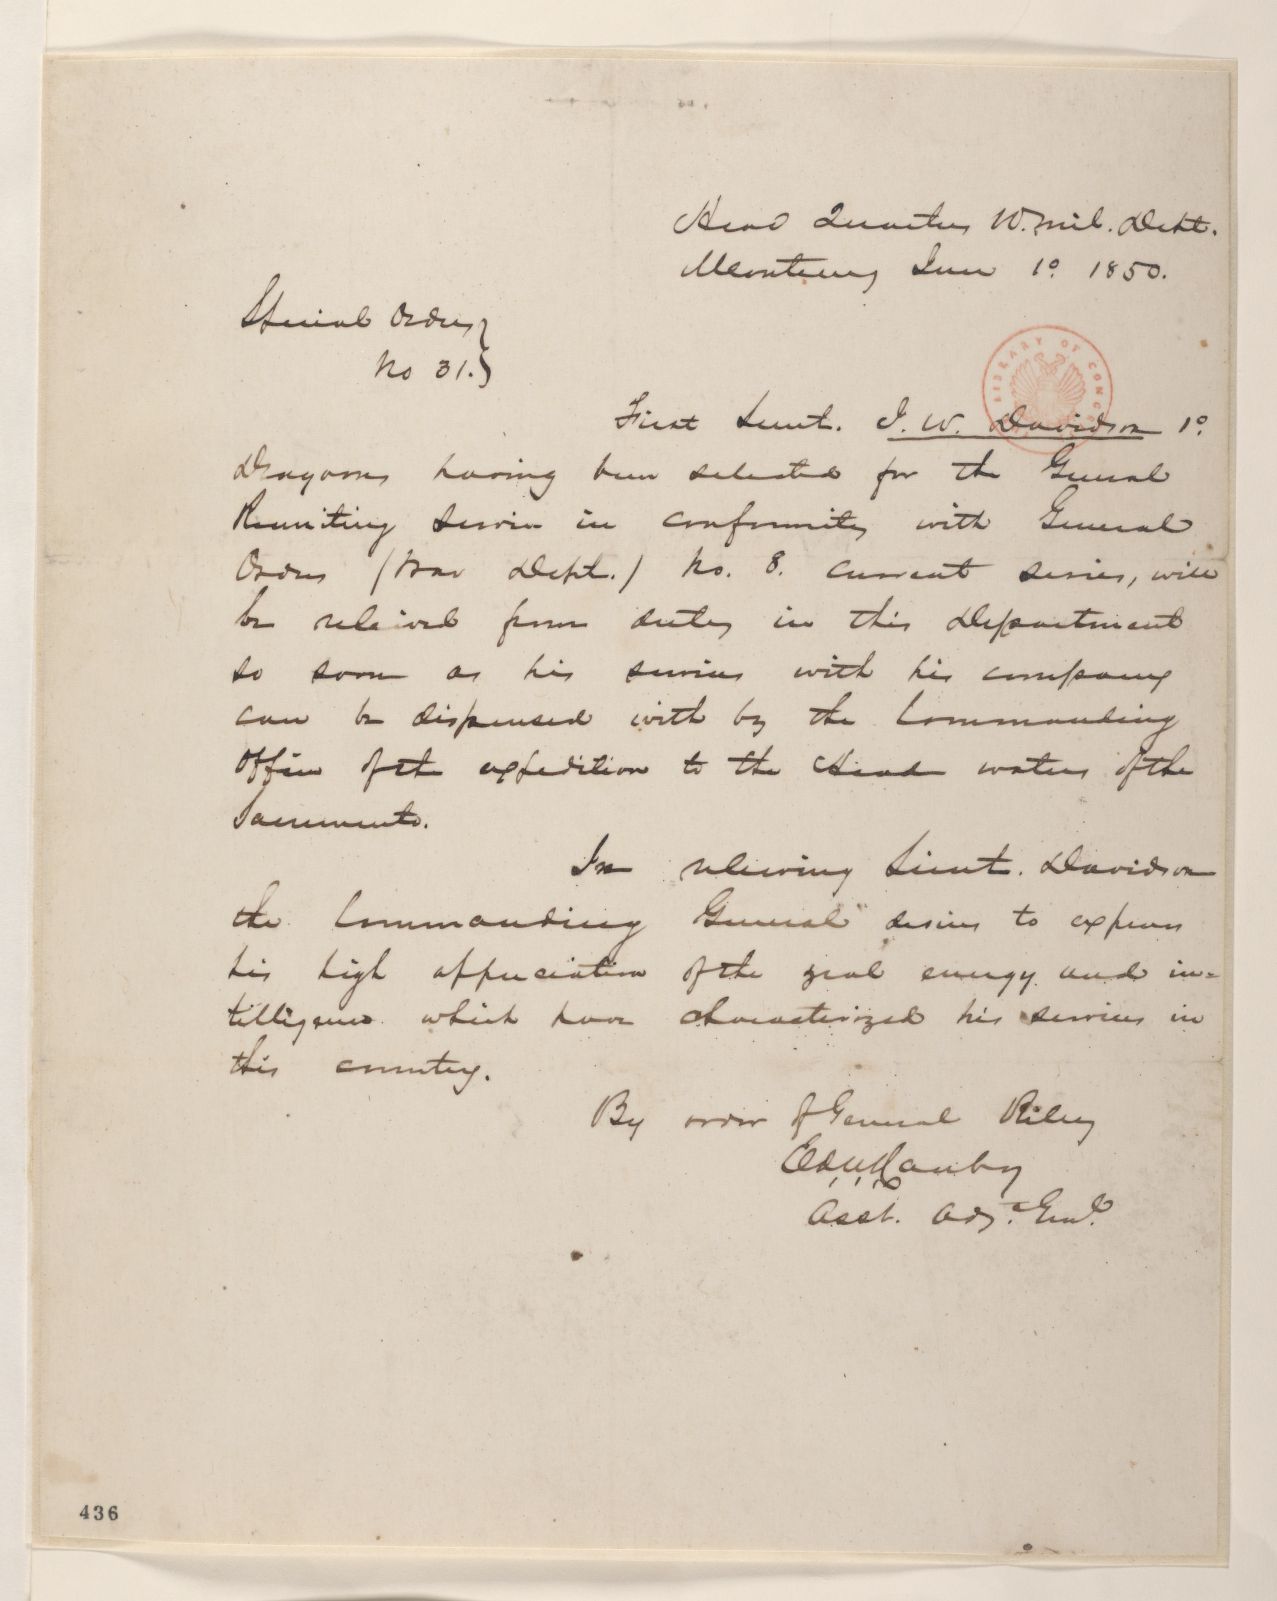 Head Quarters 10. Mil. Dept.
Monterey June 1º 1850.
Special Orders }
No 31. }
First Lieut. J. W. Davidson 1º
Dragoons having been selected for the General
Recruiting Service in conformity with General
Orders (War Dept.) No. 8. current series, will
be releived from duty in this Department
so soon as his services with his company
can be dispensed with by the Commanding
Officer of the expedition to the Head waters of the
Sacramento.
In releiving Lieut. Davidson
the Commanding General desires to express
his high appreciation of the zeal energy and in=
telligence which have characterized his services in
this country.
By order of General Riley
Ed. R. S. Canby
Asst. Adjt. Genl.
LIBRARY OF CONGRESS
436